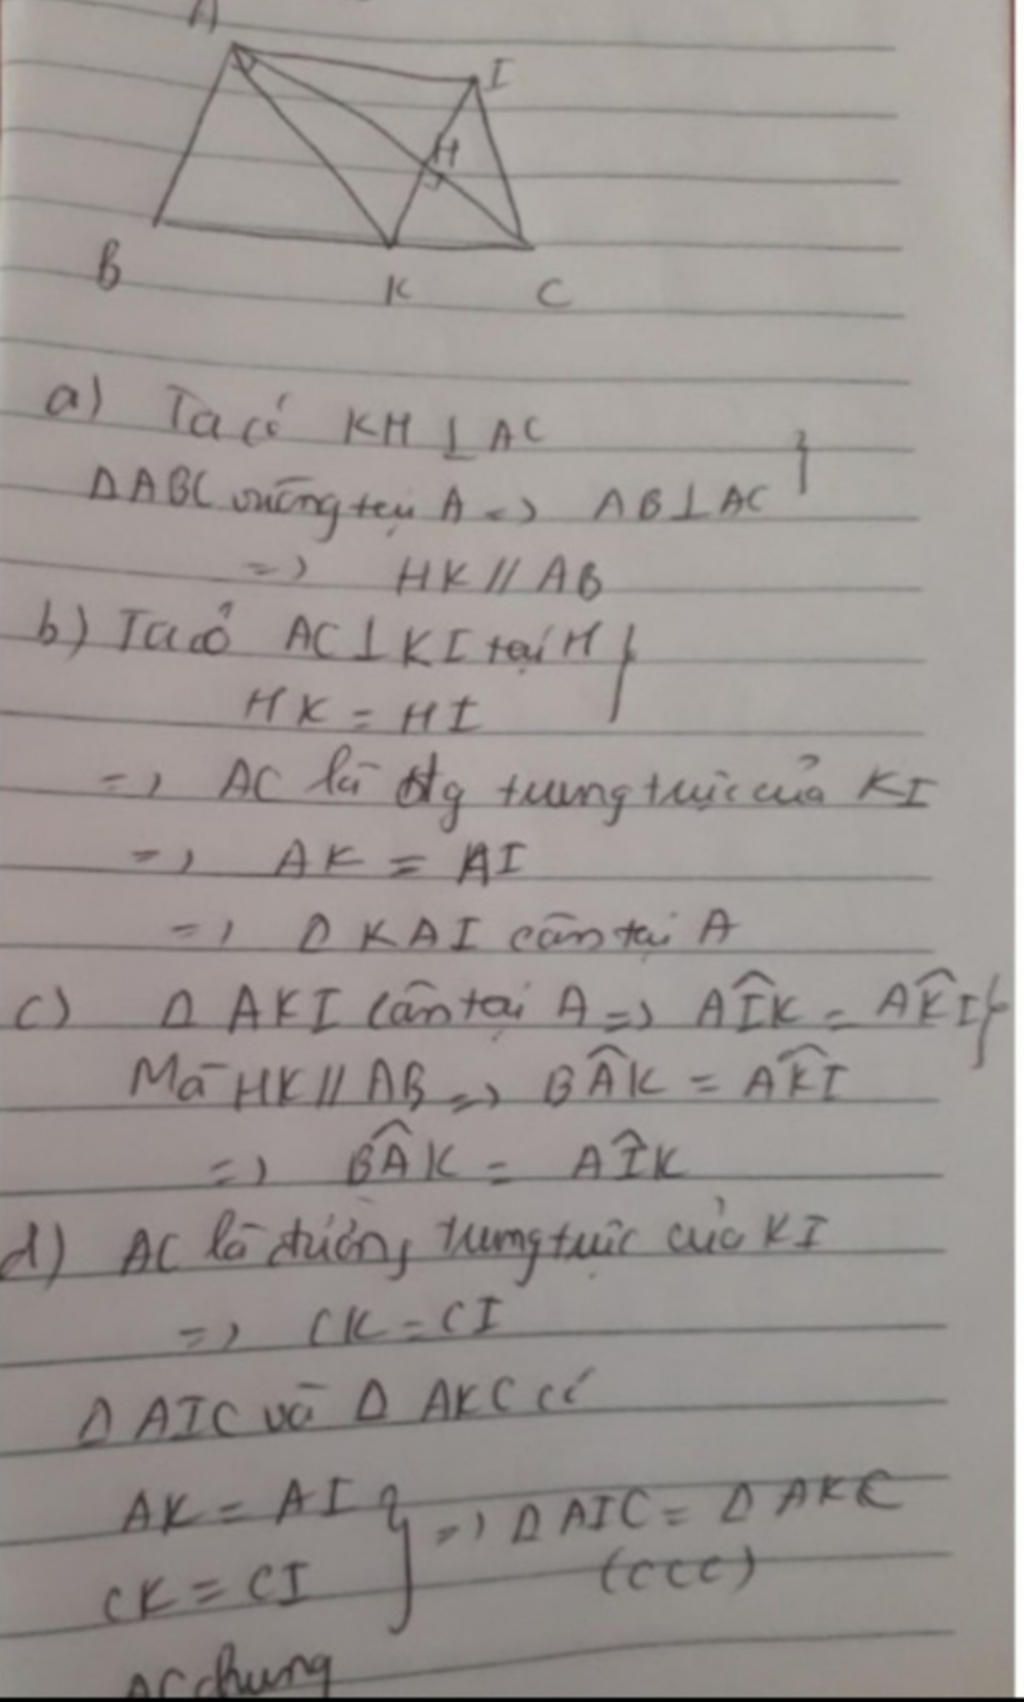 A
I
H
B
K
C
a) Ta có KH ⊥ AC
ΔABC vuông tại A => AB ⊥ AC
=> HK // AB
b) Ta có AC ⊥ KI tại H
HK = HI
=> AC là đg trung trực của KI
=> AK = AI
=> Δ KAI cân tại A
c) Δ AKI cân tại A => AÎK = AK̂I
Mà HK // AB => BÂK = AK̂I
=> BÂK = AÎK
d) AC là đường trung trực của KI
=> CK = CI
Δ AIC và Δ AKC có
AK = AI
=> Δ AIC = Δ AKC
CK = CI
(ccc)
AC chung